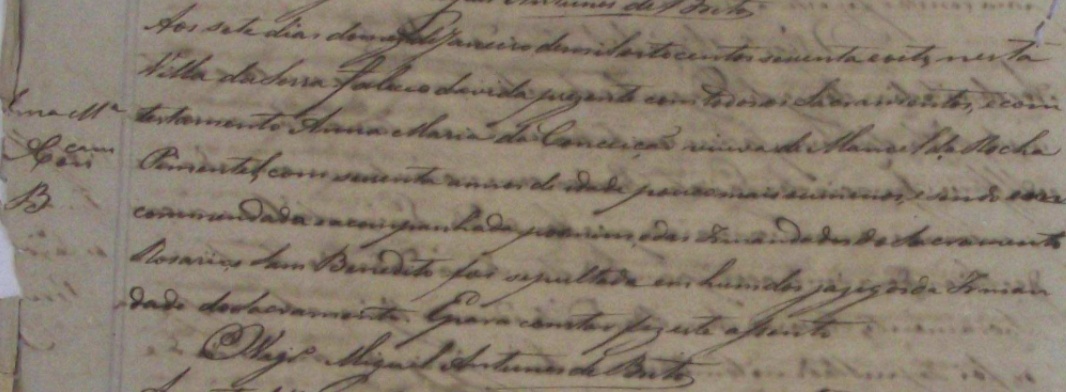 Antunes de Brito
Aos sete dias do mez de Janeiro de mil oito centos sessenta e oito, nesta
Villa da Serra falleceo da vida prezente com todos os Sacramentos, e com
Anna Mª
testamento Anna Maria da Conceição viuva de Manoel da Rocha
Pimentel, com sessenta annos de idade pouco mais ou menos, e sendo en
B
commendada e acompanhada por mim, e das Irmandades do Sacramento
Rosario, e Sam Benedito foi sepultada em hum dos jazigos da Irman
dade do Sacramento. E para constar fiz este assento
O Vigrº Miguel Antunes de Brito